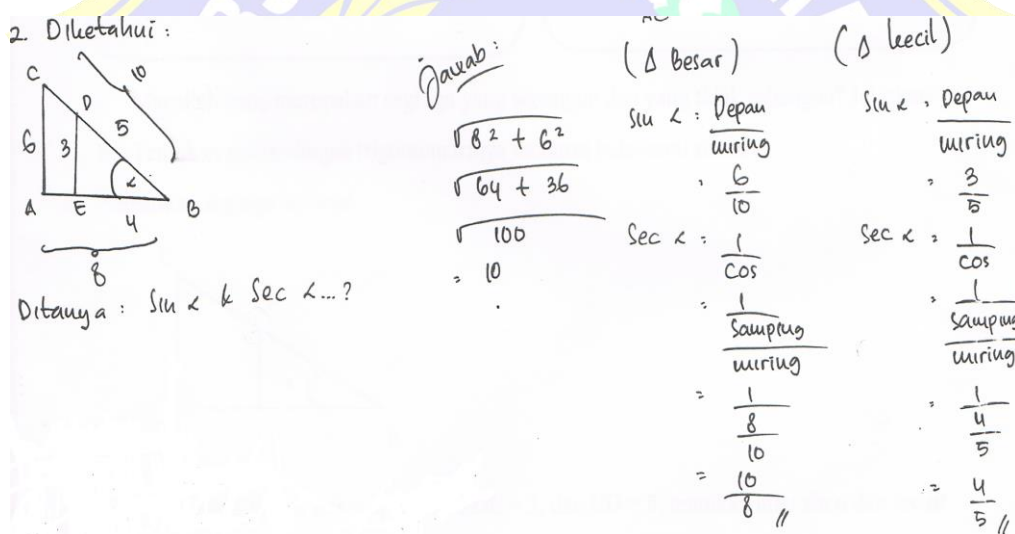 2. Diketahui :
C
10
D
5
6
3
α
A
E
B
4
8
Ditanya : Sin α & Sec α...?
Jawab :
√8² + 6²
√64 + 36
√100
= 10
(Δ Besar)
Sin α = Depan / miring
= 6/10
Sec α = 1/cos
= 1 / Samping / miring
= 1 / 8 / 10
= 10/8 //
(Δ kecil)
Sin α = Depan / miring
= 3/5
Sec α = 1/cos
= 1 / Samping / miring
= 1 / 4 / 5
= 4/5 //